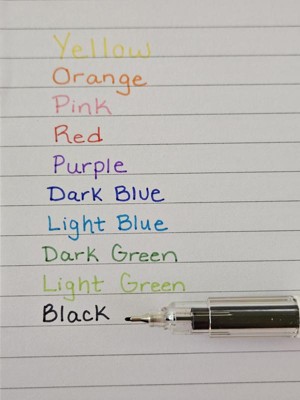 Yellow
Orange
Pink
Red
Purple
Dark Blue
Light Blue
Dark Green
Light Green
Black